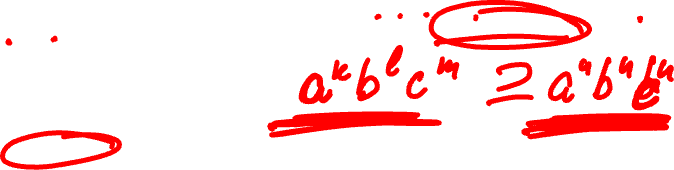 aᵏbˡcᵐ ⊇ aⁿbⁿcⁿ